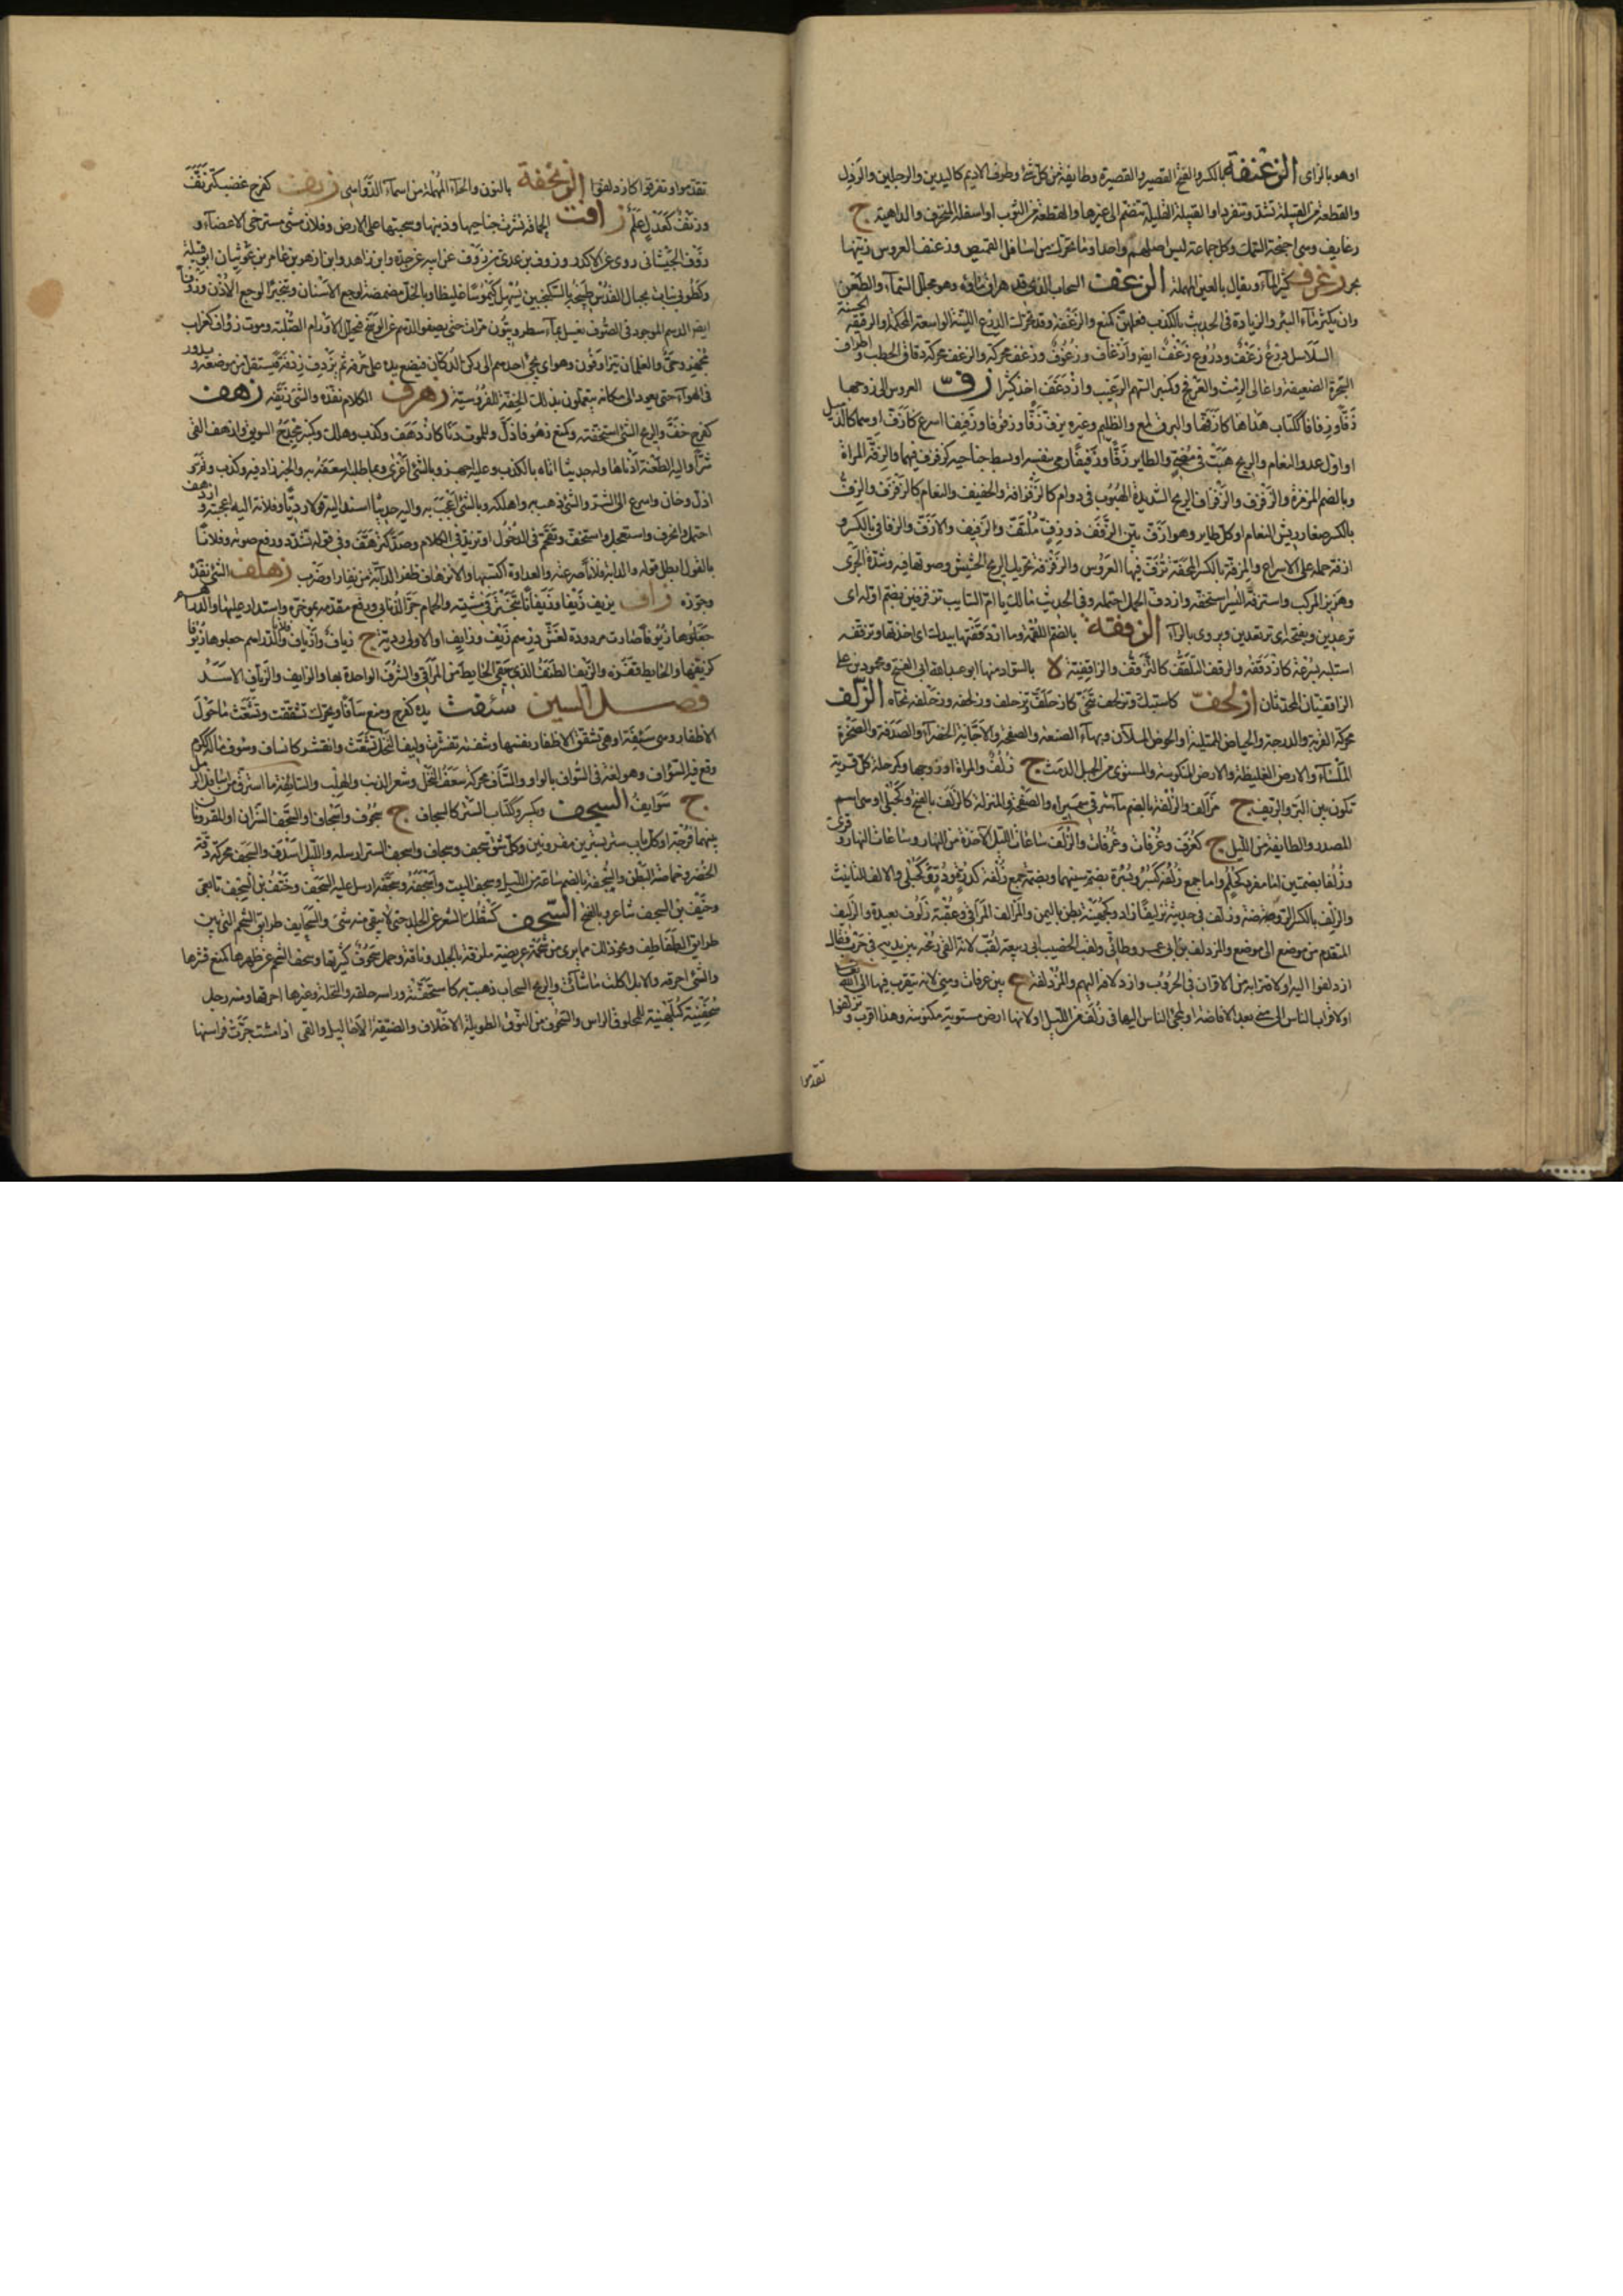 او هو بالزاى الزعنفة بالكسر والفتح القصير والقصيرة وطايفة من كل شئ وطرف الاديم كاليدين والرجلين والرذل
والقطعة من القبيلة تشذ وتنفرد او القبيلة القليلة تنضم الى غيرها والقطعة من الثوب او اسفله المتخرق والداهية ج
زعانف وهى اجنحة السمك وكل جماعة ليس اصلهم واحدا وما تحرك من اسافل القميص وزعنف العروس زينها
بحر زغرف كثير الماء ويقال بالعين المهملة الزغف السحاب الذى قد هراق ماؤه وهو مجلل السماء والطعن
وان يكثر ماء البئر والزيادة فى الحديث بالكذب فعلهن كمنع والزغفة وقد تحرك الدرع اللينة الواسعة المحكمة والرقيقة الحسنة
السلاسل درع زغف ودروع زغف ايضا وازغاف وزغوف وزغف محركة والزغف محركة دقاق الحطب واطراف
الشجرة الضعيفة واعالى الرمث والعرفج وكمنبر النهم الرغيب وازدغف اخذ كثيرا زف العروس الى زوجها
زفا وزفافا ككتاب هداها كازفها والبرق لمع والظليم وغيره يزف زفا وزفوفا وزفيفا اسرع كازف او هما كالذميل
او اول عدو النعام والريح هبت فى مضى والطاير زفا وزفيفا رمى بنفسه او بسط جناحيه كزفزف فيهما والزفة المرة
وبالضم الزمرة والزفزف والزفزاف الريح الشديدة الهبوب فى دوام كالزفزافة والخفيف والنعام كالزفزف والزف
بالكسر صغار ريش النعام او كل طاير وهو ازف بين الزفف ذو زف ملتف والزفيف والازف والزفانى بالكسر و
ازفه حمله على الاسراع والمزفة بالكسر المحفة تزف فيها العروس والزفزفة تحريك الريح الحشيش وصوتها فيه وشدة الجرى
وهزيز المركب واستزفه السير استخفه وازدف الحمل احتمله وفى الحديث مالك يا ام السايب تزفزفين بضم اوله اى
ترعدين وبفتحه اى ترتعدين ويروى بالراء الزقفة بالضم اللقمة وما ازدقفتها بيدك اى اخذتها وتزقفه
استلبه بسرعة كازدقفه والزقف التلقف كالتزقف والزاقفية لا بالسواد منها ابو عبد الله ابى الفتح ومحمود بن على
الزاقفيان المحدثان ازلحف كاستبك وتزلحف تنحى كازحلف تزحلف وزلحفه وزحلفه نحاه الزلف
محركة القربة والدرجة والحياض الممتلية او الحوض الملآن وبهاء الصنعة والصفحة والاجانة الخضراء والصدفة والصخرة
الملساء والارض الغليظة والارض المكنوسة والمستوى من الجبل الدمث ج زلف والمرآة او وجهها وكمرحلة كل قرية
تكون بين البر والريف ج مزالف والزلفة بالضم ماءة شرقى سميراء والصفحة والمنزلة كالزلف بالفتح وكحبلى او هى اسم
المصدر والطايفة من الليل ج كغرف وغرفات وغرفات والزلف ساعات الليل الآخذة من النهار وساعات النهار وقرئ
وزلفا بضمتين اما مفرد كحلم واما جمع زلفة كبسر وبسرة بضم سينهما وبضمة جمع زلفة كدرة ودر وكحبلى والالف للتانيث
والزلف بالكسر الروضة وزلف فى حديثه تزليفا زاد وكجهينة بطن باليمن والمزالف المراقى وعقبة زلوف بعيدة والزليف
المتقدم من موضع الى موضع والمزدلف بن ابى عمرو طائى ولقب الخصيب ابى ربيعة لقب لانه القى رمحه بين يديه فى حرب فقال
ازدلفوا اليه او لاقترابه من الاقران فى الحروب وازدلافه اليهم والمزدلفة ع بين عرفات ومنى لانه يتقرب فيها الى الله
او لاقتراب الناس الى منى بعد الافاضة او لمجئ الناس اليها فى زلف من الليل او لانها ارض مستوية مكنوسة وهذا اقرب وتزلفوا
تقدموا
تقدموا وتفرقوا كازدلفوا الزنحفة بالنون والحاء المهملة من اسماء الدواهى زنف كفرح غضب كتزنف
وزنف كعدل علم زافت الحمامة نشرت جناحيها وذنبها وسحبتها على الارض وفلان مشى مسترخى الاعضاء و
زوف الخيشانى روى عن الاكدر وزوف بن عدى بن زوف عن ابيه عن جده وابن زاهد وابن ازهر بن عامر بن عوثبان ابو قبيلة
وكطوبى نبات بجبال القدس طبيخه بالسكنجبين يسهل كيموسا غليظا وبالخل مضمضة لوجع الاسنان وتبخيرا لوجع الاذن وزوفا
ايضا الدسم الموجود فى الصوف يغسل بماء سطروبيون مرات حتى يصفو الدسم عن الوسخ فيحلل الاورام الصلبة وموت زواف كغراب
مجهز وحى والغلمان يتزاوفون وهو ان يجئ احدهم الى ركن الدكان فيضع يده على حرفه ثم يزوف زوفة فيستقل من موضعه ويدور
فى الهواء حتى يعود الى مكانه يتعلمون بذلك الخفة للفروسية زهرف الكلام نفذه والشئ زيفه زهف
كفرح خف والريح الشئ استخفته وكمنع زهوفا ذل وللموت دنا كازدهف وكذب وهلك وكمنبر مجدح السويق وازهف الى
شرا واليه الطعنة ادناها وله حديثا اتاه بالكذب وعليه اجهز وبالشئ اغرى وبما طلبه اسعفه به والخبر زاد فيه وكذب ونم و
اذل وخان واسرع الى الشر والشئ ذهب به واهلكه وبالشئ اعجب به واليه حديثا اسند اليه قولا رديا وفلانة اليه اعجبته وازدهف
احتمل وانحرف واستعجل واستخف وتقحم فى الدخول او تزيد فى الكلام وصد كتزهف وفى قوله تشدد ورفع صوته وفلانا
بالقول ابطل قوله والدابة فلانا صرعته والعداوة اكتسبها والازهاف ظفر الدابة من نفار او ضرب زهلف الشئ نفذه
وجوزه زاف يزيف زيفا وزيفانا تبختر فى مشيته والحمام جر الذنابى ودفع مقدمه بموخره واستدار عليها والدراهم
جعلوها زيوفا صارت مردودة لغش درهم زيف وزايف او الاولى ردية ج زياف وازياف وفلان الدراهم جعلها زيوفا
كزيفها والحايط قفزه والزيف الطنف الذى يقى الحايط من المراقى والشرف الواحدة بهاء والزايف والزياف الاسد
فصل السين سئفت يده كفرح ومنع سأفا ويحرك تشققت وتشعث ما حول
الاظفار وهى سئفة او هى تشقق الاظفار نفسها وشفته تقشرت وليف النخل تشعث وانقشر كانساف وسوف ماله ككرم
وقع فيه السؤاف وهو لغة فى السواف بالواو والسأف محركة سعف النخل وشعر الذنب والهلب والسايفة ما استرق من اسافل الرمل
ج سوايف السجف ويكسر وككتاب الستر كالسجاف ج سجوف واسجاف او السجف الستران او المقرونان
بينهما فرجة او كل باب ستر بسترين مقرونين وكل شق سجف وسجاف واسجف الستر ارسله والليل اسدف والسجف محركة دقة
الخصر وخماصة البطن والسجفة بالضم ساعة من الليل وسجف البيت واسجفه وسجفه ارسل عليه السجف وحتف بن السجف تابعى
وحنيف بن السجف شاعر وبالفتح السحف كشطك الشعر عن الجلد حتى لا يبقى منه شئ والسحايف طرايق الشحم التى بين
طرايق الطفاطف ونحو ذلك مما يرى من شحمة عريضة ملزقة بالجلد وناقة وجمل سحوف كثيرتها وسحف الشحم عن ظهرها كمنع قشرها
والشئ احرقه والابل اكلت ما شاءت والريح السحاب ذهبت به كاسحفته وراسه حلقه والنخلة وغيرها احرقها ومنه رجل
سحفنية كبلهنية للمحلوق الراس والسحوف من النوق الطويلة الاخلاف والضيقة الاحاليل والتى اذا مشت جرت فراسنها